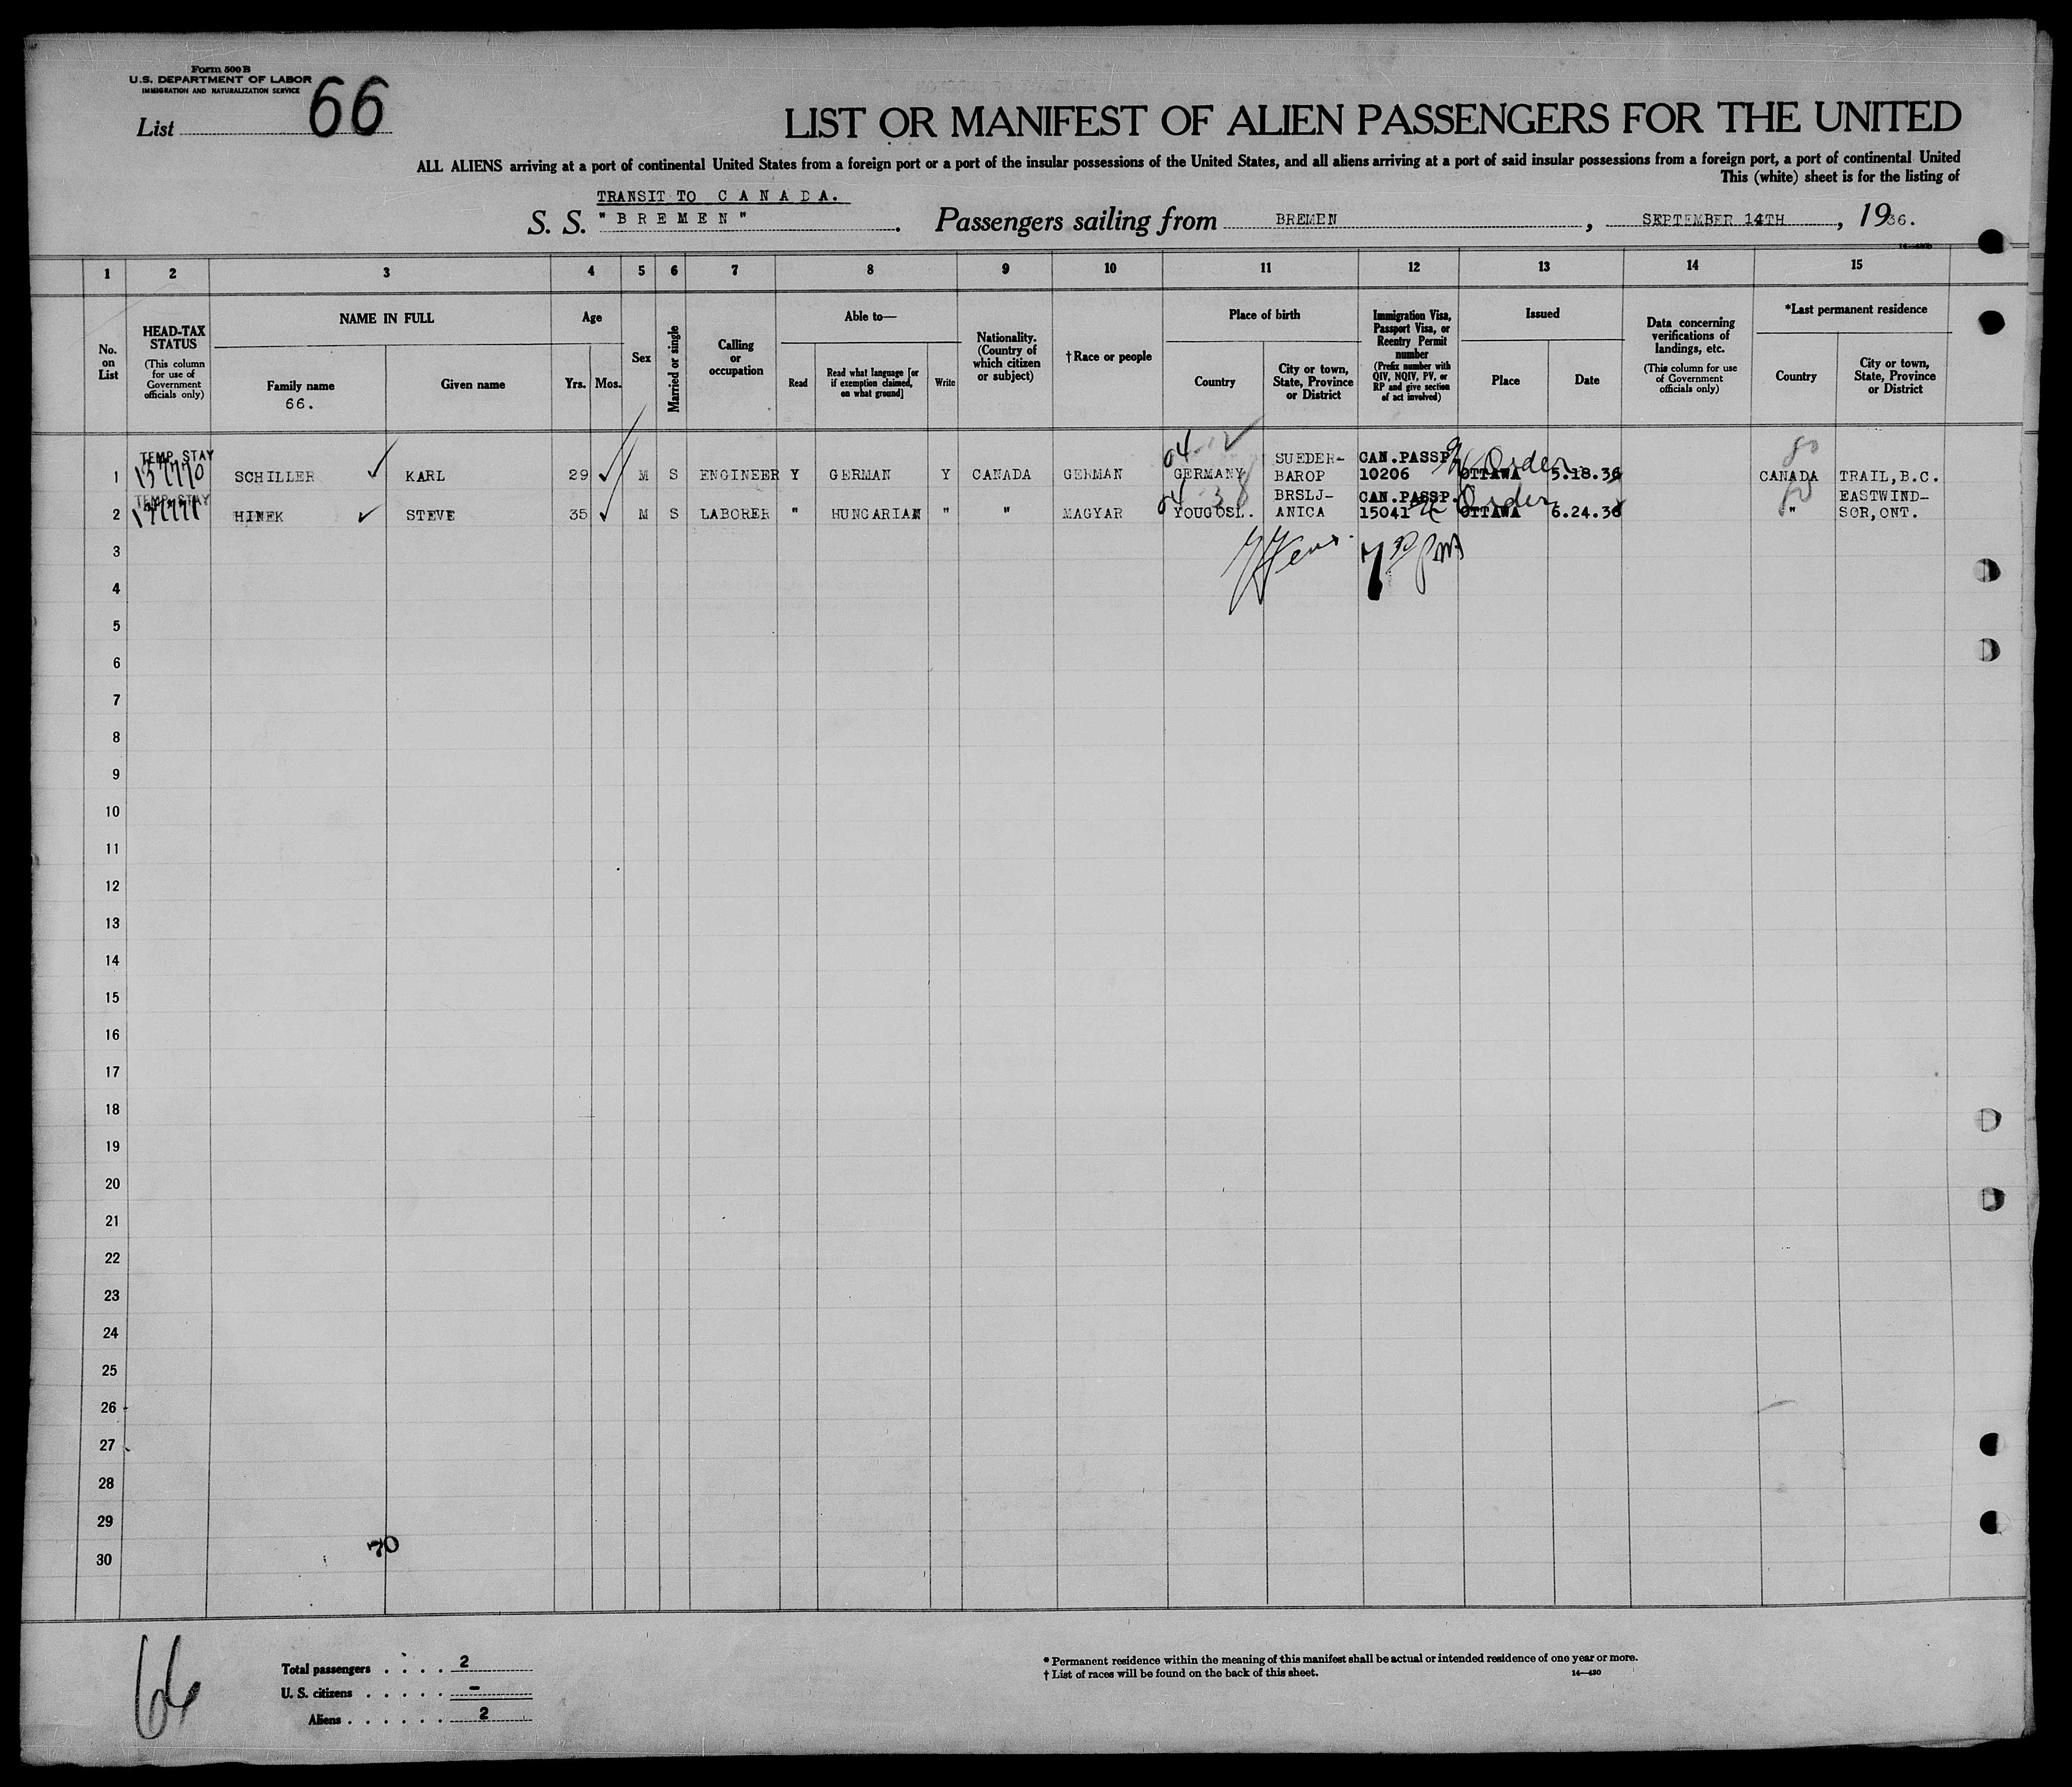 Form 500 B
U.S. DEPARTMENT OF LABOR
IMMIGRATION AND NATURALIZATION SERVICE
List 66
LIST OR MANIFEST OF ALIEN PASSENGERS FOR THE UNITED
ALL ALIENS arriving at a port of continental United States from a foreign port or a port of the insular possessions of the United States, and all aliens arriving at a port of said insular possessions from a foreign port, a port of continental United
This (white) sheet is for the listing of
TRANSIT TO CANADA.
S. S. "BREMEN". Passengers sailing from BREMEN, SEPTEMBER 14TH, 1936.
1 2 3 4 5 6 7 8 9 10 11 12 13 14 15
No. on List
HEAD-TAX STATUS
(This column for use of Government officials only)
NAME IN FULL
Family name
66.
Given name
Age
Yrs. Mos.
Sex
Married or single
Calling or occupation
Able to—
Read
Read what language [or if exemption claimed, on what ground]
Write
Nationality. (Country of which citizen or subject)
†Race or people
Place of birth
Country
City or town, State, Province or District
Immigration Visa, Passport Visa, or Reentry Permit number
(Prefix number with QIV, NQIV, PV, or RP and give section of act involved)
Issued
Place
Date
Data concerning verifications of landings, etc.
(This column for use of Government officials only)
*Last permanent residence
Country
City or town, State, Province or District
TEMP. STAY 04-12 SUEDER- CAN.PASSP. Order 80
1 SCHILLER KARL 29 M S ENGINEER Y GERMAN Y CANADA GERMAN GERMANY BAROP 10206 OTTAWA 5.18.36 CANADA TRAIL,B.C.
TEMP. STAY 04-38 BRSLJ- CAN.PASSP. Order 80 EASTWIND-
2 HINEK STEVE 35 M S LABORER " HUNGARIAN " " MAGYAR YOUGOSL. ANICA 15041 OTTAWA 6.24.36 " SOR,ONT.
3
4
5
6
7
8
9
10
11
12
13
14
15
16
17
18
19
20
21
22
23
24
25
26
27
28
29
30
70
66
Total passengers . . . . 2
U. S. citizens . . . . . -
Aliens . . . . . . 2
* Permanent residence within the meaning of this manifest shall be actual or intended residence of one year or more.
† List of races will be found on the back of this sheet.
14—430